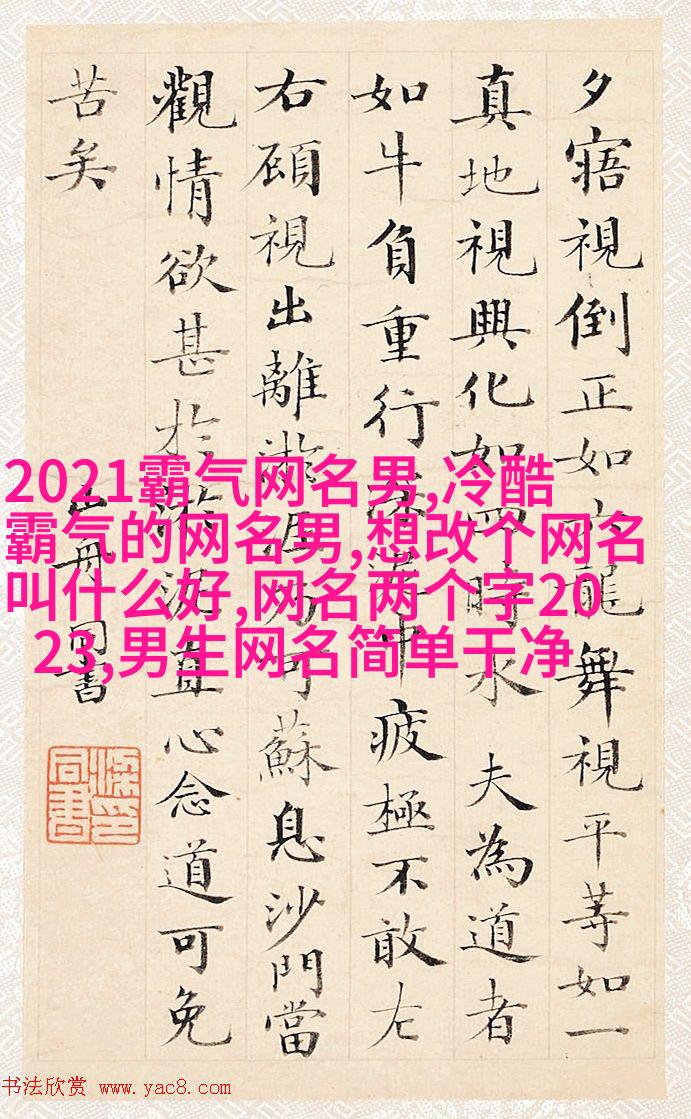 夕寤視倒正如六龍舞視平等如一
真地視興化如四時木 夫為道者
如牛負重行深泥中疲極不敢左
右顧視出離淤泥乃可蘇息沙門當
觀情欲甚於淤泥直心念道可免
苦矣
山舟同書
2021霸气网名男,冷酷
霸气的网名男,想改个网名
叫什么好,网名两个字20
23,男生网名简单干净
书法欣赏 www.yac8.com